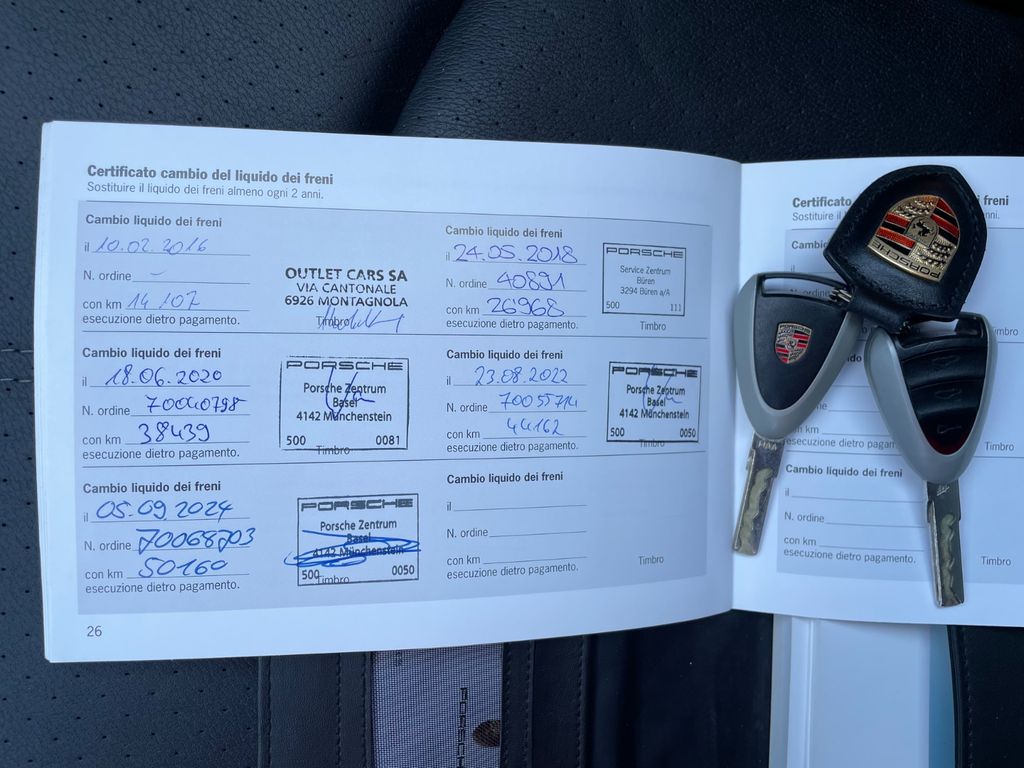 Certificato cambio del liquido dei freni
Sostituire il liquido dei freni almeno ogni 2 anni.
Cambio liquido dei freni
il 10.02.2016
N. ordine -
con km 14 107
esecuzione dietro pagamento.
OUTLET CARS SA
VIA CANTONALE
6926 MONTAGNOLA
Timbro
Cambio liquido dei freni
24.05.2018
N. ordine 40891
con km 26968
esecuzione dietro pagamento.
PORSCHE
Service Zentrum
Büren
3294 Büren a/A
500 111
Timbro
Cambio liquido dei freni
il 18.06.2020
N. ordine 70040798
con km 38439
esecuzione dietro pagamento.
PORSCHE
Porsche Zentrum
Basel
4142 Münchenstein
500 0081
Timbro
Cambio liquido dei freni
il 23.08.2022
N. ordine 70055714
con km 44162
esecuzione dietro pagamento.
PORSCHE
Porsche Zentrum
Basel
4142 Münchenstein
500 0050
Timbro
Cambio liquido dei freni
il 05.09.2024
N. ordine 70068703
con km 50160
esecuzione dietro pagamento.
PORSCHE
Porsche Zentrum
Basel
4142 Münchenstein
500 0050
Timbro
Cambio liquido dei freni
il
N. ordine
con km
esecuzione dietro pagamento.
Timbro
26
Certificato freni
Sostituire il anni.
Timbro
Timbro
Cambio liquido dei freni
il
N. ordine
con km
esecuzione dietro pagamento.
Timbro
PORSCHE
HAA
PORSCHE